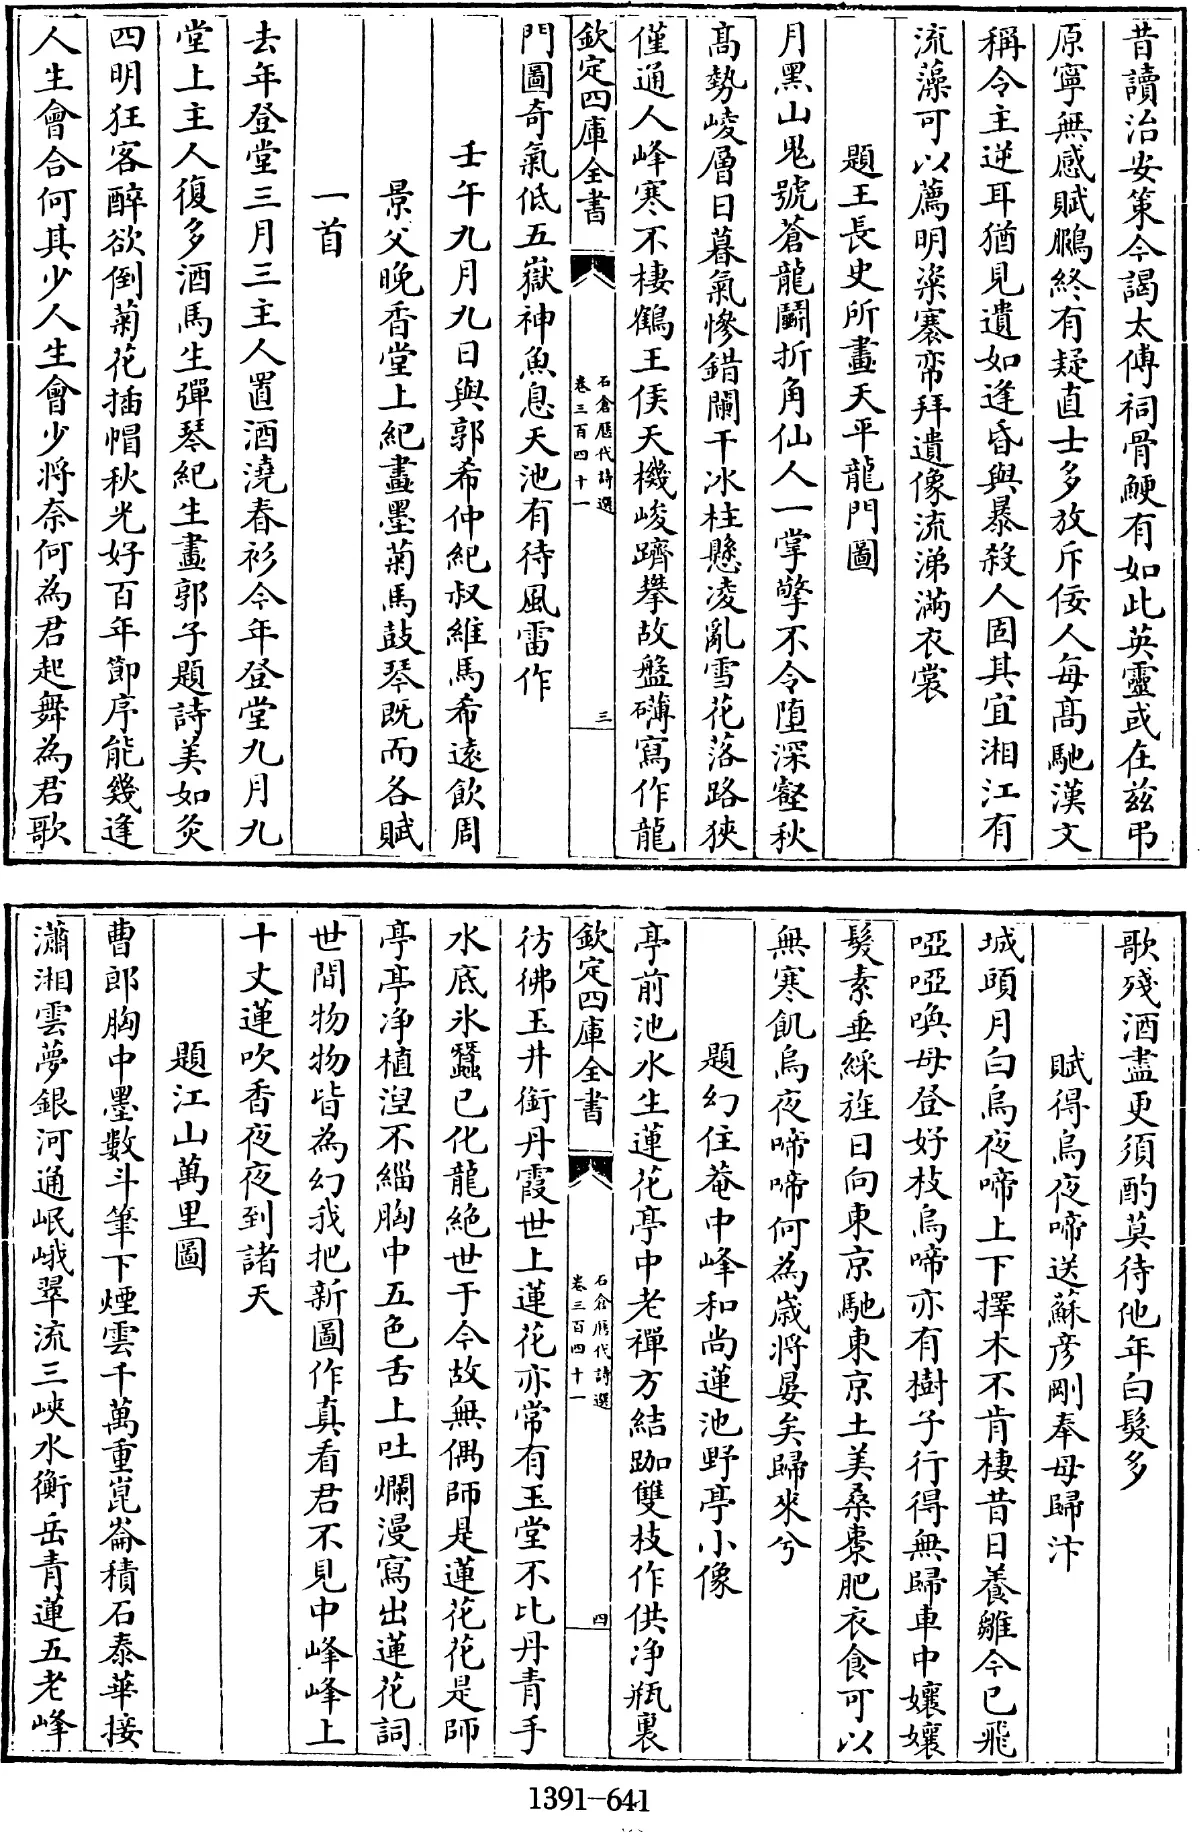 昔讀治安策今謁太傅祠骨鯁有如此英靈或在兹弔
原寧無感賦鵩終有疑直士多放斥佞人每髙馳漢文
稱令主逆耳猶見遺如逢昏與暴殺人固其宜湘江有
流藻可以薦明粢褰帘拜遺像流涕滿衣裳
題王長史所畫天平龍門圖
月黑山鬼號蒼龍鬭折角仙人一掌擎不令墮深壑秋
髙勢崚層日暮氣慘錯闌干冰柱懸凌亂雪花落路狹
僅通人峰寒不棲鶴王侯天機峻躋攀故盤礴寫作龍
欽定四庫全書
石倉歷代詩選
卷三百四十一
三
門圖奇氣低五嶽神魚息天池有待風雷作
壬午九月九日與郭希仲紀叔維馬希遠飲周
景父晚香堂上紀畫墨菊馬鼓琴既而各賦
一首
去年登堂三月三主人置酒澆春衫今年登堂九月九
堂上主人復多酒馬生彈琴紀生畫郭子題詩美如炙
四明狂客醉欲倒菊花插帽秋光好百年節序能幾逢
人生會合何其少人生會少將奈何為君起舞為君歌
歌殘酒盡更須酌莫待他年白髮多
賦得烏夜啼送蘇彦剛奉母歸汴
城頭月白烏夜啼上下擇木不肯棲昔日養雛今已飛
啞啞喚母登好枝烏啼亦有樹子行得無歸車中孃孃
髮素垂綵旌日向東京馳東京土美桑棗肥衣食可以
無寒飢烏夜啼啼何為歳將晏矣歸來兮
題幻住菴中峰和尚蓮池野亭小像
亭前池水生蓮花亭中老禪方結跏雙枝作供净瓶裏
欽定四庫全書
石倉歷代詩選
卷三百四十一
四
彷彿玉井銜丹霞世上蓮花亦常有玉堂不比丹青手
水底氷蠶已化龍絶世于今故無偶師是蓮花花是師
亭亭净植湼不緇胸中五色舌上吐爛漫寫出蓮花詞
世間物物皆為幻我把新圖作真看君不見中峰峰上
十丈蓮吹香夜夜到諸天
題江山萬里圖
曹郎胸中墨數斗筆下煙雲千萬重崑崙積石泰華接
瀟湘雲夢銀河通岷峨翠流三峽水衡岳青蓮五老峰
1391-641